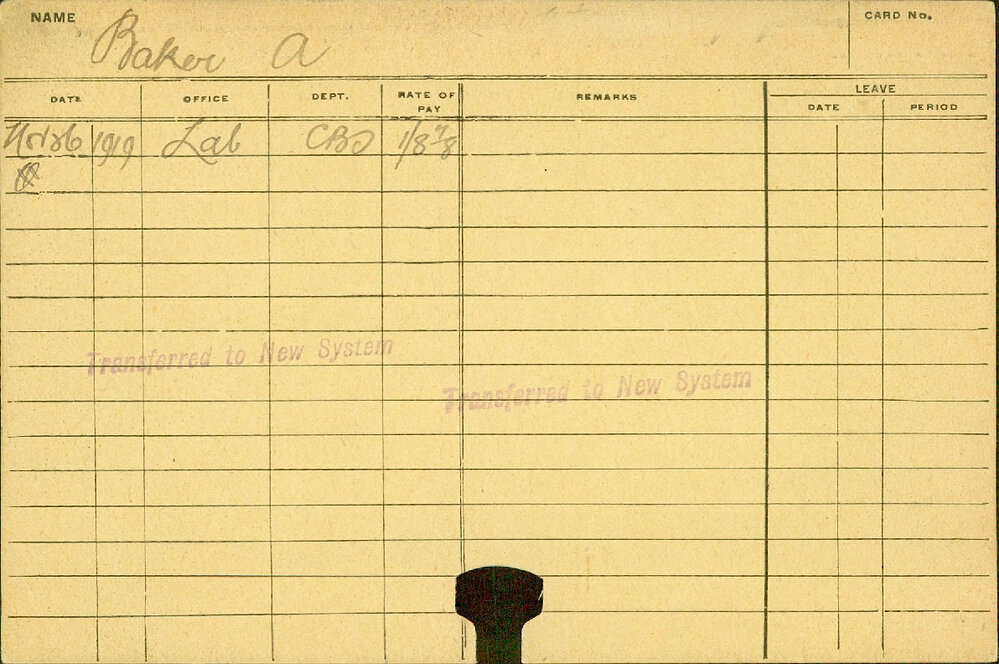 NAME Baker A CARD No.
DATE OFFICE DEPT. RATE OF PAY REMARKS LEAVE
DATE PERIOD
Nov 26 1919 Lab CBD 1/8 7/8
Transferred to New System
Transferred to New System